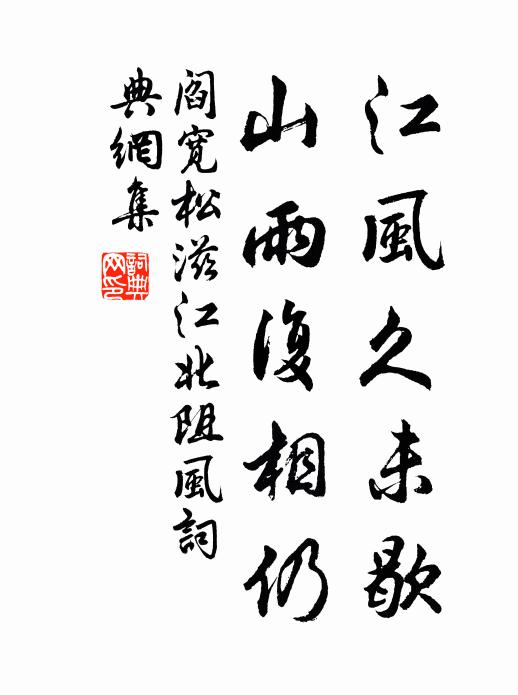 江風久未歇
山雨復相仍
閻寬松滋江北阻風詞
典網集
詞典
网印